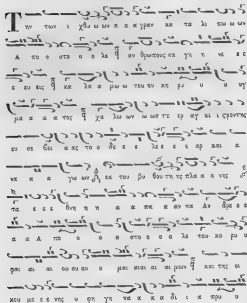 Την των ι χθυ ων α α α γραν κα τα λι πω ω ων
Α πο ο στο ο ο λε αν θρωπους σα γη νε
ε ευ εις κα λα μω ω του κη ρυ υ υγ
μα α α τος χα λων ω ως τε ερ αγ κι ι στρον της
ευ σε βει ας το ο δε ε λε ε ε αρ και α
να α α γων εκ του βυ θου της πλα α α νης
τα ε ε θνη η α α πα αν τα Αν δρε ε ε
α α Α πο ο ο στο ο ο λε του κο ρυ υ
φαι αι αι ου ου ου μαι αι αι μον και της οι
κου με ε νης υ φη γη τα α α δι ι α πρυ